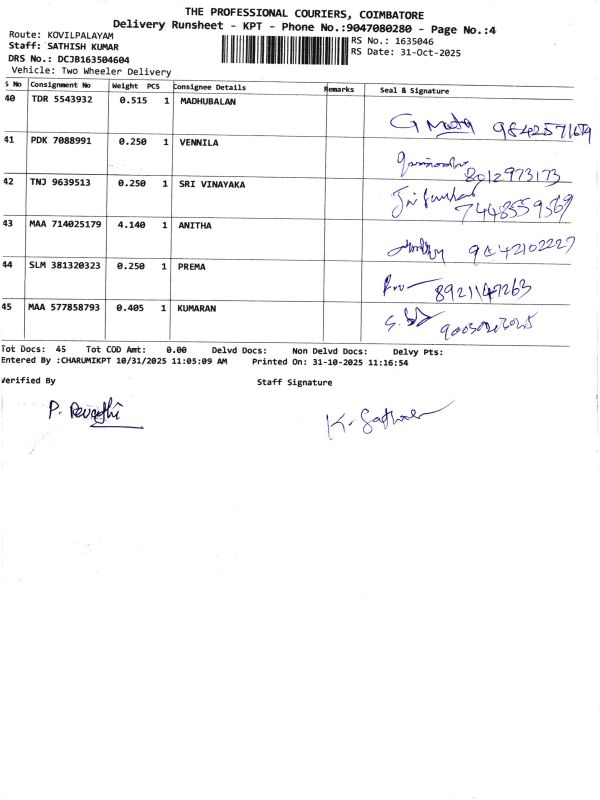 THE PROFESSIONAL COURIERS, COIMBATORE
Delivery Runsheet - KPT - Phone No.:9047080280 - Page No.:4
Route: KOVILPALAYAM
Staff: SATHISH KUMAR
DRS No.: DCJB163504604
Vehicle: Two Wheeler Delivery
RS No.: 1635046
RS Date: 31-Oct-2025
S No Consignment No Weight PCS Consignee Details Remarks Seal & Signature
40 TDR 5543932 0.515 1 MADHUBALAN
G 9842571679
41 PDK 7088991 0.250 1 VENNILA
8012973173
42 TNJ 9639513 0.250 1 SRI VINAYAKA
7448559569
43 MAA 714025179 4.140 1 ANITHA
9842102227
44 SLM 381320323 0.250 1 PREMA
8921147263
45 MAA 577858793 0.405 1 KUMARAN
Tot Docs: 45 Tot COD Amt: 0.00 Delvd Docs: Non Delvd Docs: Delvy Pts:
Entered By :CHARUMIKPT 10/31/2025 11:05:09 AM Printed On: 31-10-2025 11:16:54
Verified By Staff Signature
P. Revathi